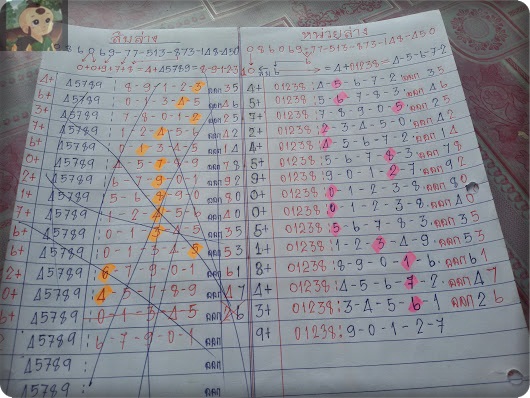 สิบล่าง
086069-77-513-873-148-450
4+ 45789 : 8-9-1-2-3 ออก 35
6+ 45789 : 0-1-3-4-5 ออก 46
3+ 45789 : 7-8-0-1-2 ออก 25
7+ 45789 : 1-2-4-5-6 ออก 42
6+ 45789 : 0-1-3-4-5 ออก 14
0+ 45789 : 4-5-7-8-9 ออก 78
2+ 45789 : 6-7-9-0-1 ออก 92
1+ 45789 : 5-6-8-9-0 ออก 80
7+ 45789 : 1-2-4-5-6 ออก 40
6+ 45789 : 0-1-3-4-5 ออก 35
45789 : 0-1-3-4-5 ออก 53
2+ 45789 : 6-7-9-0-1 ออก 61
0+ 45789 : 4-5-7-8-9 ออก 47
6+ 45789 : 0-1-3-4-5 26
45789 : 6-7-9-0-1 ออก
45789 : ออก
45789 : ออก
หน่วยล่าง
086069-77-513-873-148-450
= 4+01238 = 4-5-6-7-2
4+ 01238 : 4-5-6-7-2 ออก 35
5+ 01238 : 5-6-7-8-3 ออก 46
7+ 01238 : 7-8-9-0-5 ออก 25
2+ 01238 : 2-3-4-5-0 ออก 42
4+ 01238 : 4-5-6-7-2 ออก 14
5+ 01238 : 5-6-7-8-3 ออก 78
9+ 01238 : 9-0-1-2-7 ออก 92
0+ 01238 : 0-1-2-3-8 ออก 80
0+ 01238 : 0-1-2-3-8 ออก 40
5+ 01238 : 5-6-7-8-3 ออก 35
1+ 01238 : 1-2-3-4-9 ออก 53
8+ 01238 : 8-9-0-1-6 ออก 61
4+ 01238 : 4-5-6-7-2 ออก 47
3+ 01238 : 3-4-5-6-1 ออก 26
9+ 01238 : 9-0-1-2-7